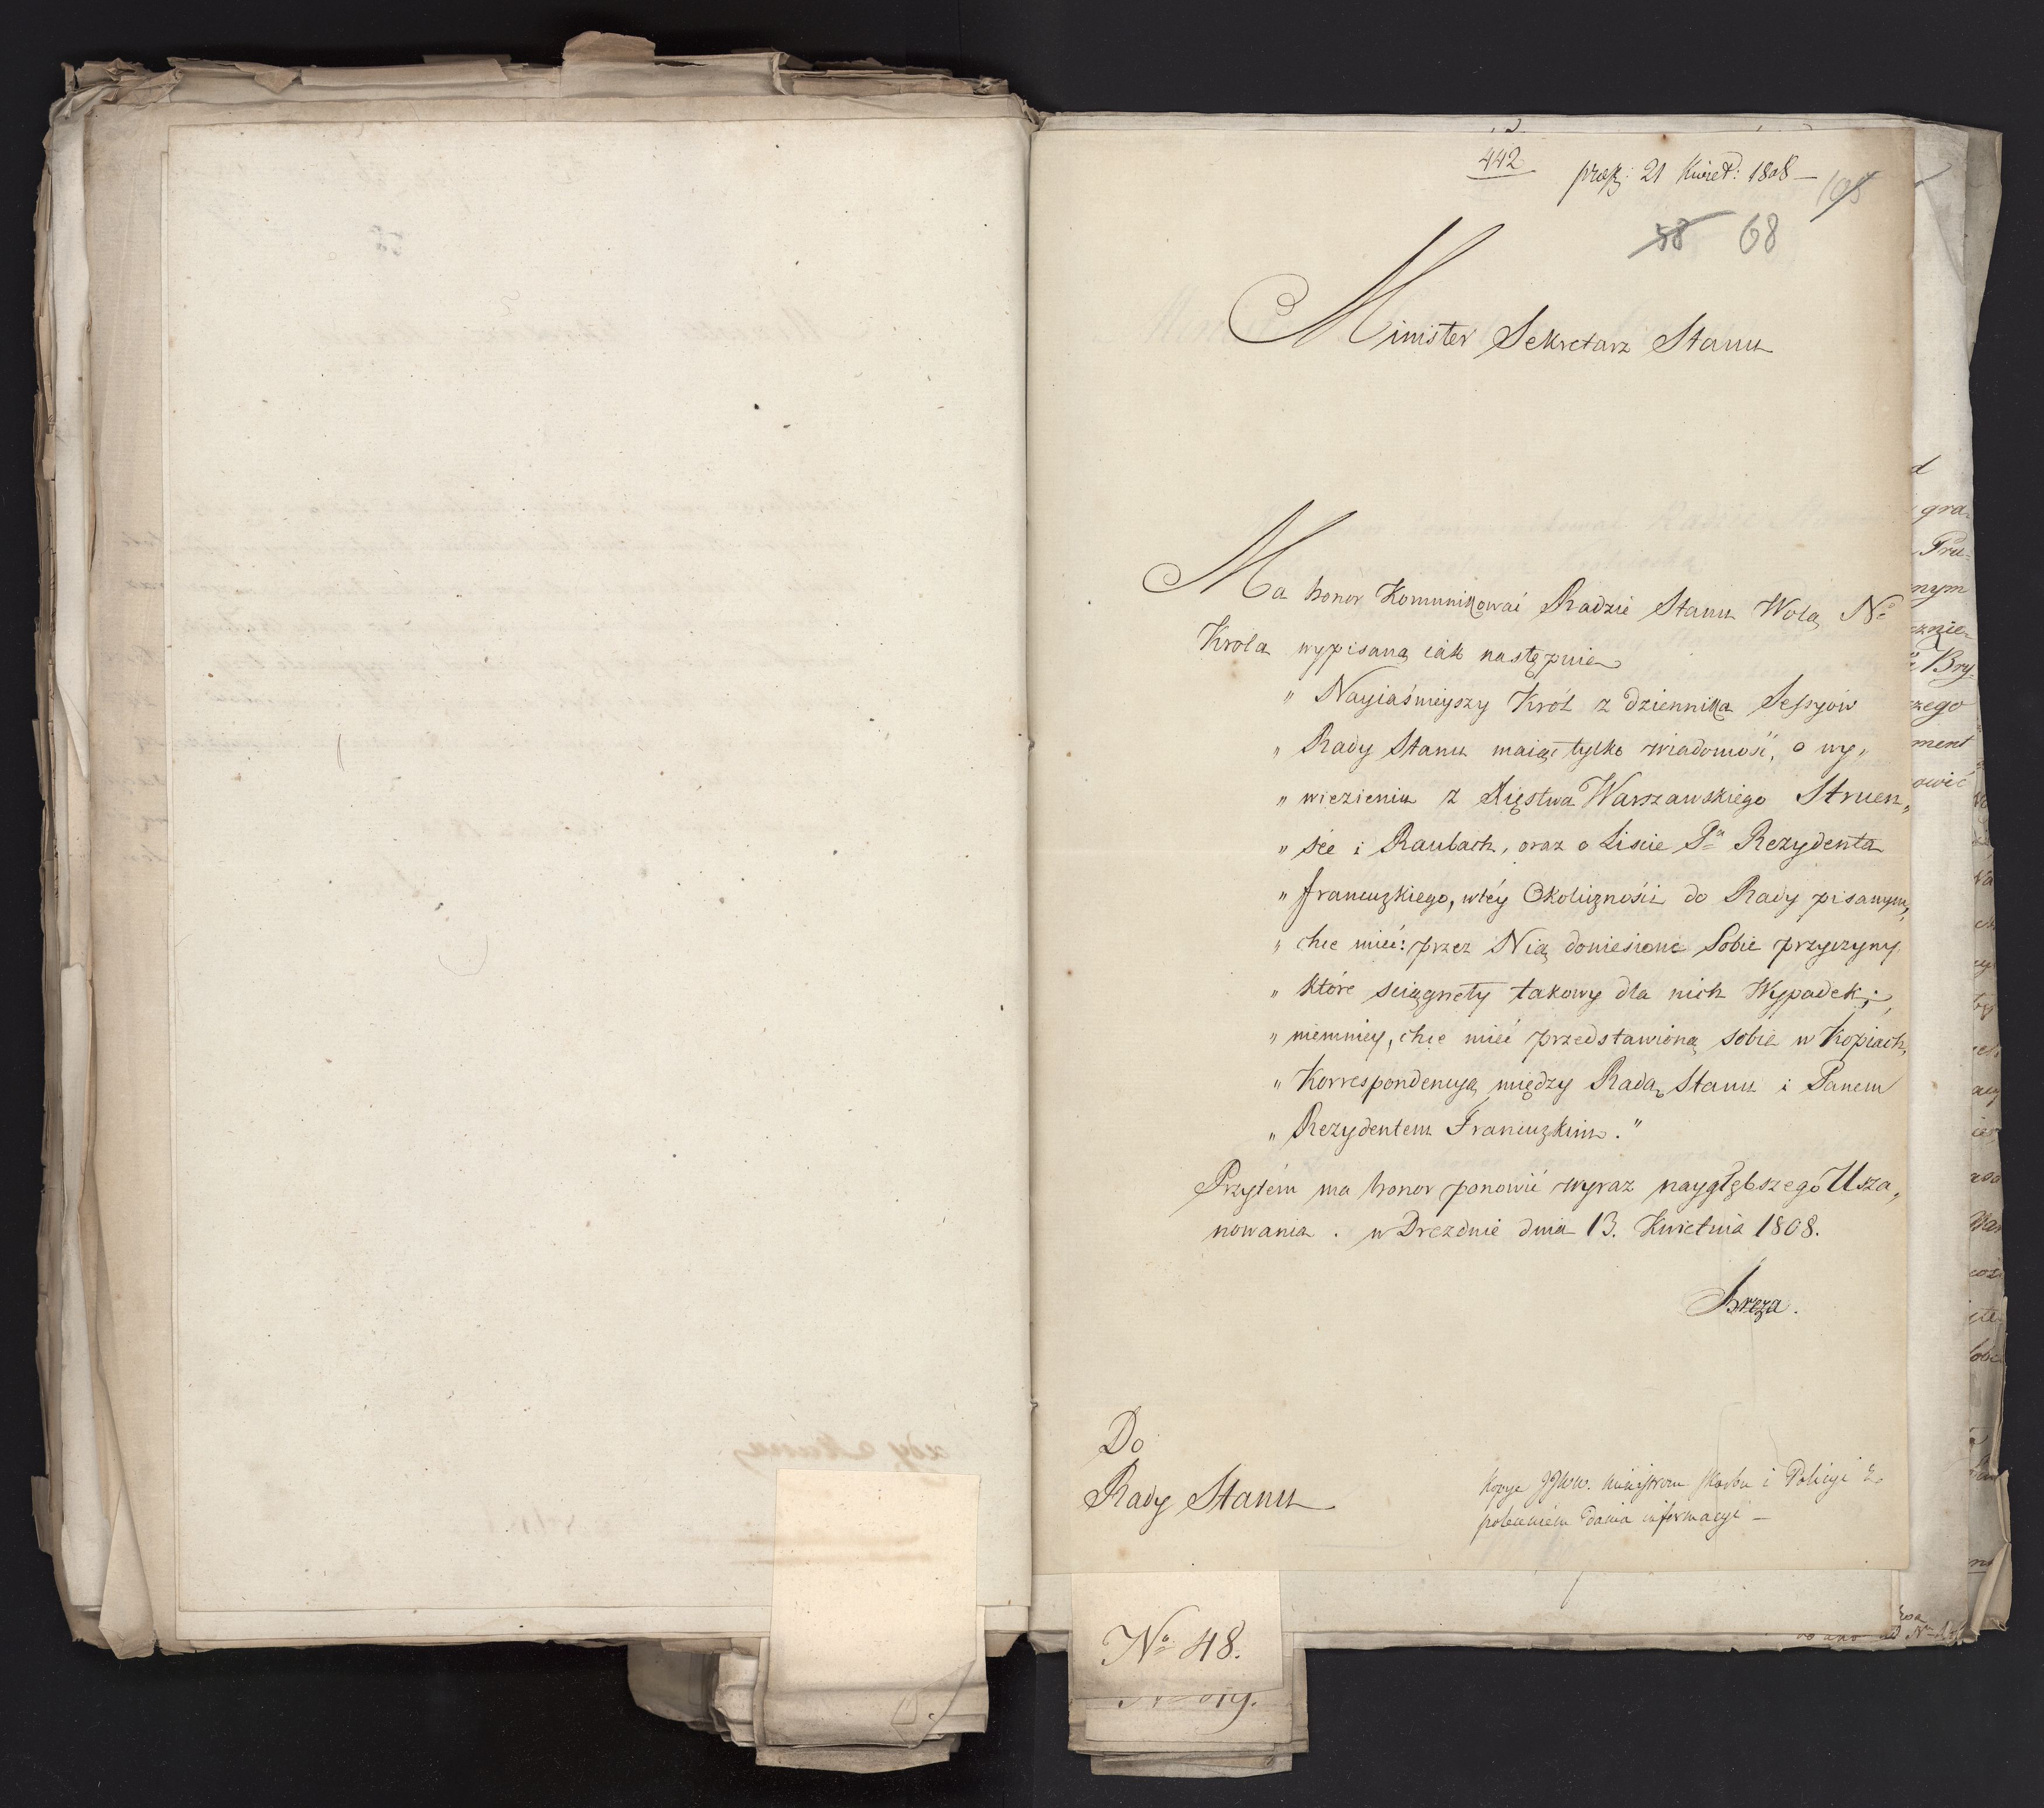 442
præs: 21 Kwiet: 1808 —
105
58 68
Minister Sekretarz Stanu
Ma honor Komunikować Radzie Stanu Wolą N.º
Króla wypisaną iak następuie
„ Nayiaśnieyszy Król z dziennika Sessyów
„ Rady Stanu maiąc tylko wiadomość, o wy„
„ wiezieniu z Xięstwa Warszawskiego Struen„
„ sée i Raubach, oraz o Liscie P.ª Rezydenta
„ francuzkiego, wtéy Okoliczności do Rady pisanym,
„ chce mieć: przez Nią doniesione Sobie przyczyny
„ które sciągnęły takowy dla nich Wypadek;
„ niemniey, chce mieć przedstawioną sobie w Kopiach,
„ Korrespondencyą między Radą Stanu i Panem
„ Rezydentem Francuzkim."
Przytém ma honor ponowić wyraz naygłębszego Usza„
nowania . w Dreznie dnia 13. Kwietnia 1808.
Breza.
Do
Rady Stanu
Kopye JJWW. Ministrom Skarbu i Policyi z
poleceniem dania informacyi —
Nº 48.
d
gra„
Pru„
nym
cznie„
Bry„
zego
ment
owić